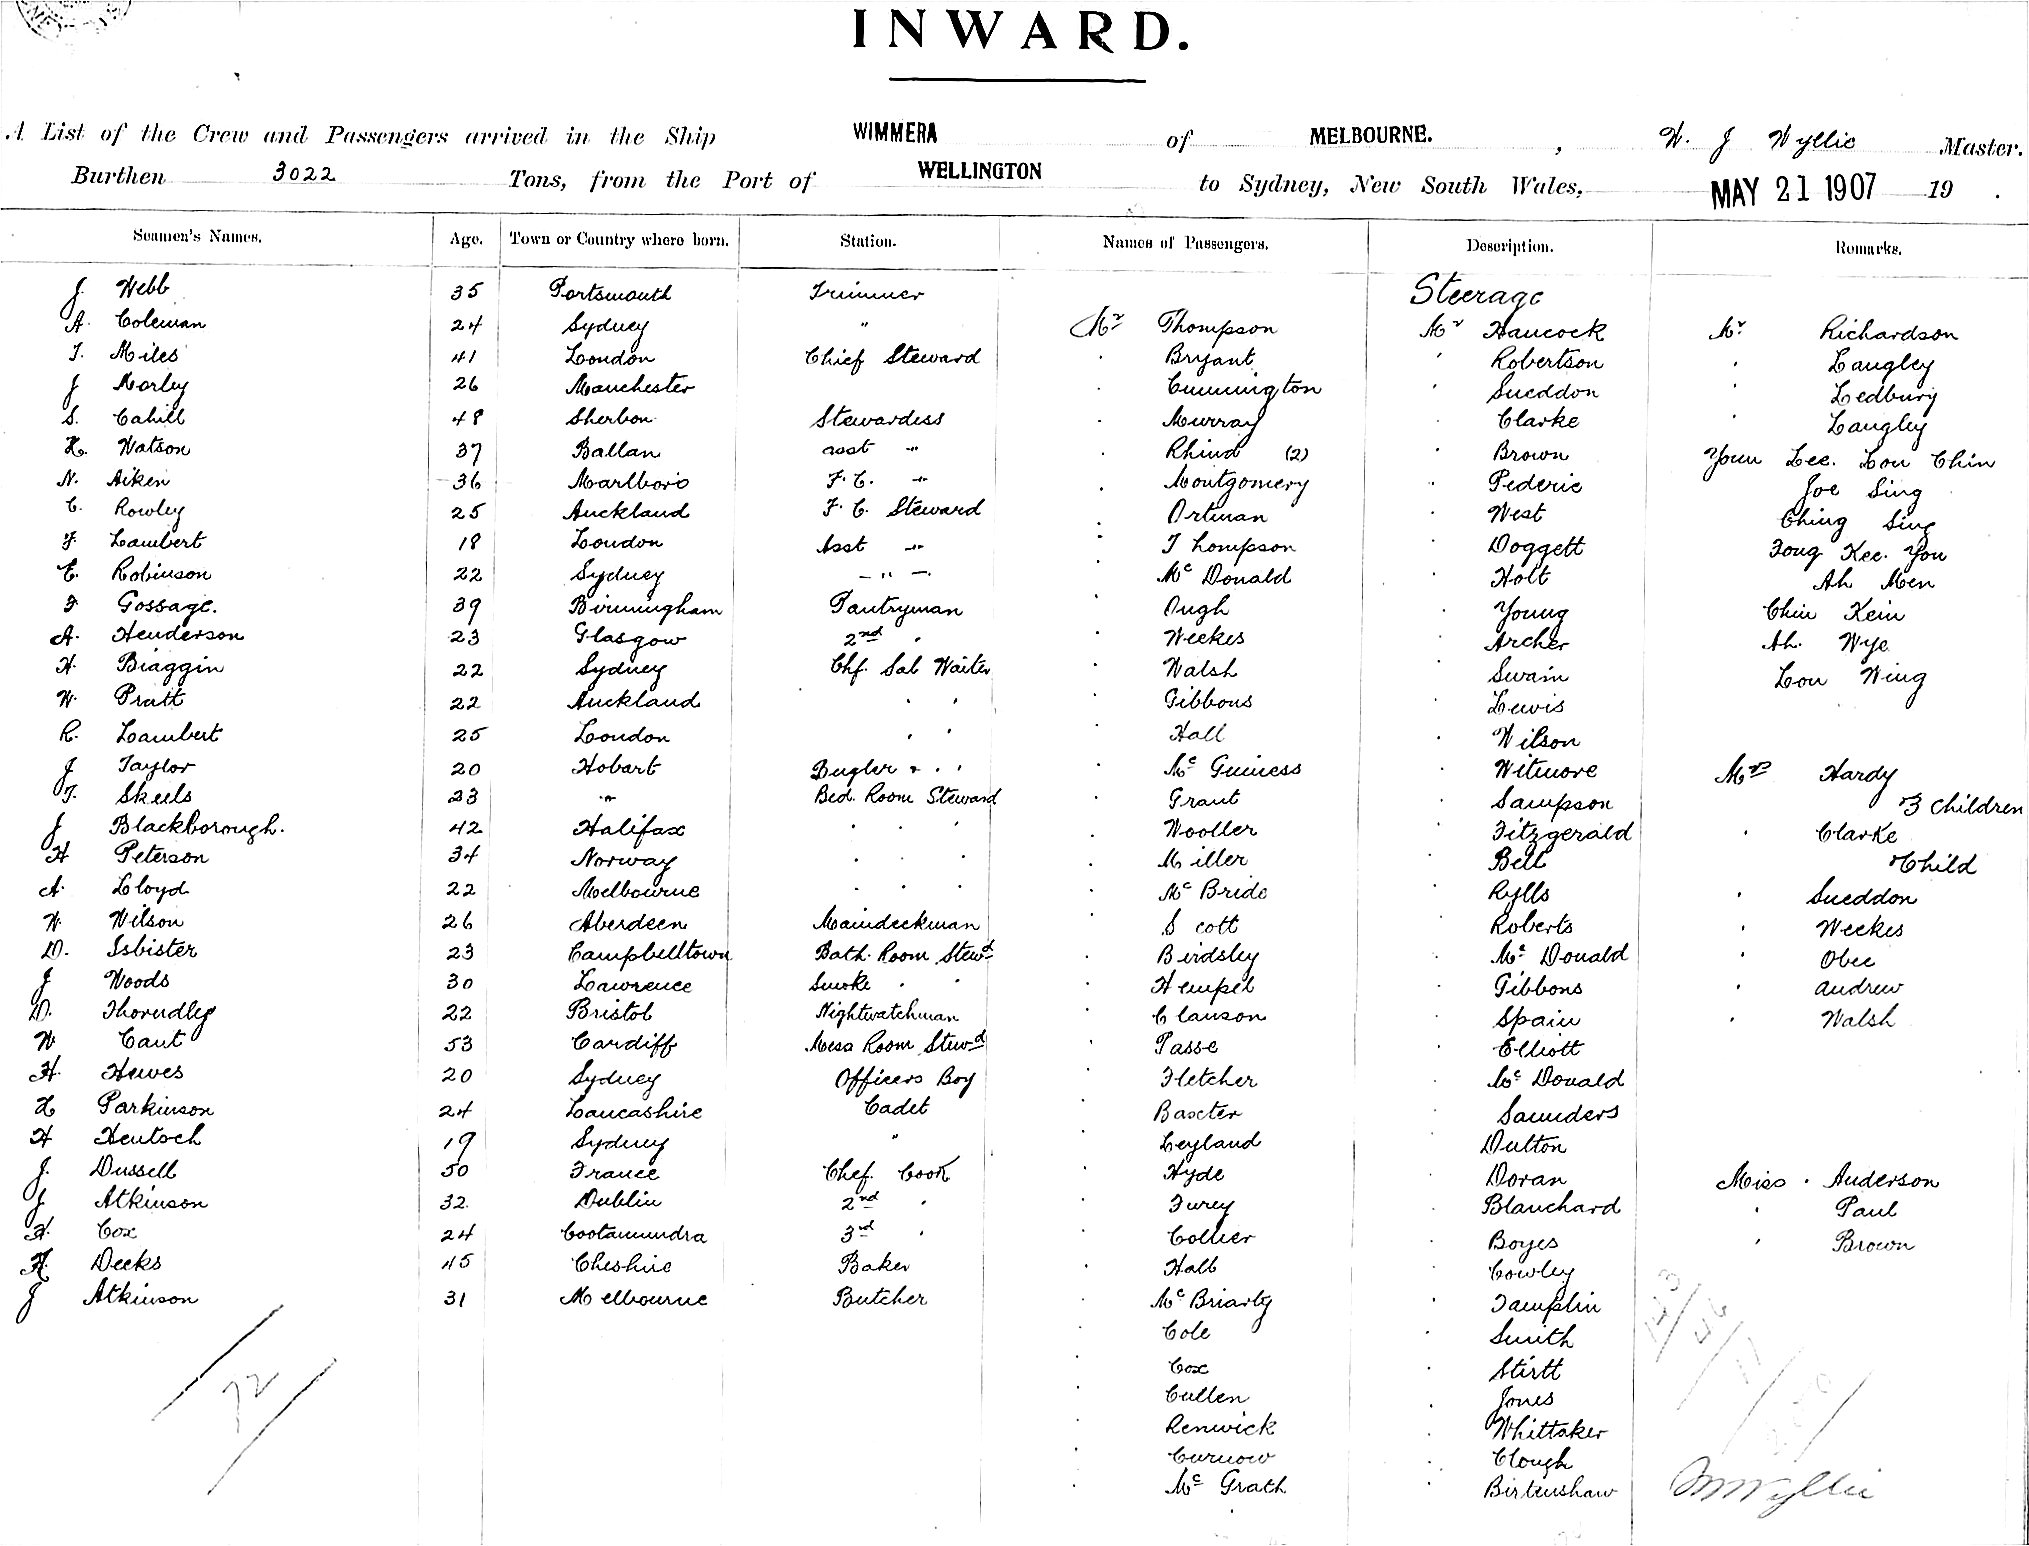 INWARD.
A List of the Crew and Passengers arrived in the Ship WIMMERA of MELBOURNE. , W. J Wyllie Master.
Burthen 3022 Tons, from the Port of WELLINGTON to Sydney, New South Wales, MAY 21 1907 19 .
Seamen's Names. Age. Town or Country where born. Station. Names of Passengers. Description. Remarks.
J. Webb 35 Portsmouth Trimmer Steerage
A. Coleman 24 Sydney " Mr Thompson Mr Hancock Mr Richardson
T. Miles 41 London Chief Steward Bryant Robertson Langley
J Morley 26 Manchester Cunnington Sneddon Ledbury
S. Cahill 48 Sherbon Stewardess Murray Clarke Langley
H. Watson 37 Ballan asst " Rhind (2) Brown Youn Lee. Lou Chin
N. Aiken 36 Marlboro F. C. " Montgomery Pederic Joe Sing
C. Rowley 25 Auckland F. C. Steward Ortman West Ching Sing
F. Lambert 18 London Asst " Thompson Doggett Fong Kee. You
C. Robinson 22 Sydney " Mc Donald Holt Ah Men
F Gossage. 39 Birmingham Pantryman Ough Young Chin Kein
A. Henderson 23 Glasgow 2nd " Weekes Archer Ah. Wye
H. Biaggin 22 Sydney Chf. Sal Waiter Walsh Swain Lou Wing
W. Pratt 22 Auckland " " Gibbons Lewis
R. Lambert 25 London " " Hall Wilson
J Taylor 20 Hobart Bugler & " " Mc Guiness Witmore Mrs Hardy
T. Skeels 23 " Bed. Room Steward Grant Sampson & 3 children
J Blackborough. 42 Halifax " " " Wooller Fitzgerald Clarke
H Peterson 34 Norway " " " Miller Bell & Child
A. Lloyd 22 Melbourne " " " Mc Bride Rylls Sneddon
W. Wilson 26 Aberdeen Maindeckman Scott Roberts Weekes
D. Isbister 23 Campbelltown Bath. Room Stewd Birdsley Mc Donald Obee
J Woods 30 Lawrence Smoke " " Hempel Gibbons Andrew
D. Thorndley 22 Bristol Nightwatchman Clauson Spain Walsh
W Cant 53 Cardiff Mess Room Stewd Passe Elliott
H. Hawes 20 Sydney Officers Boy Fletcher Mc Donald
L Parkinson 24 Lancashire Cadet Baxter Saunders
H Hentsch 19 Sydney " Leyland Dutton
J. Dussell 50 France Chef. Cook Hyde Doran Miss Anderson
J Atkinson 32. Dublin 2nd " Furey Blanchard Paul
H. Cox 24 Cootamundra 3rd " Collier Boyes Brown
H. Deeks 45 Cheshire Baker Hall Cowley
J Atkinson 31 Melbourne Butcher Mc Briarty Tamplin
Cole Smith
Cox Stirtt
72 Cullen Jones
Renwick Whittaker
Curnow Clough
Mc Grath Birtenshaw WWyllie